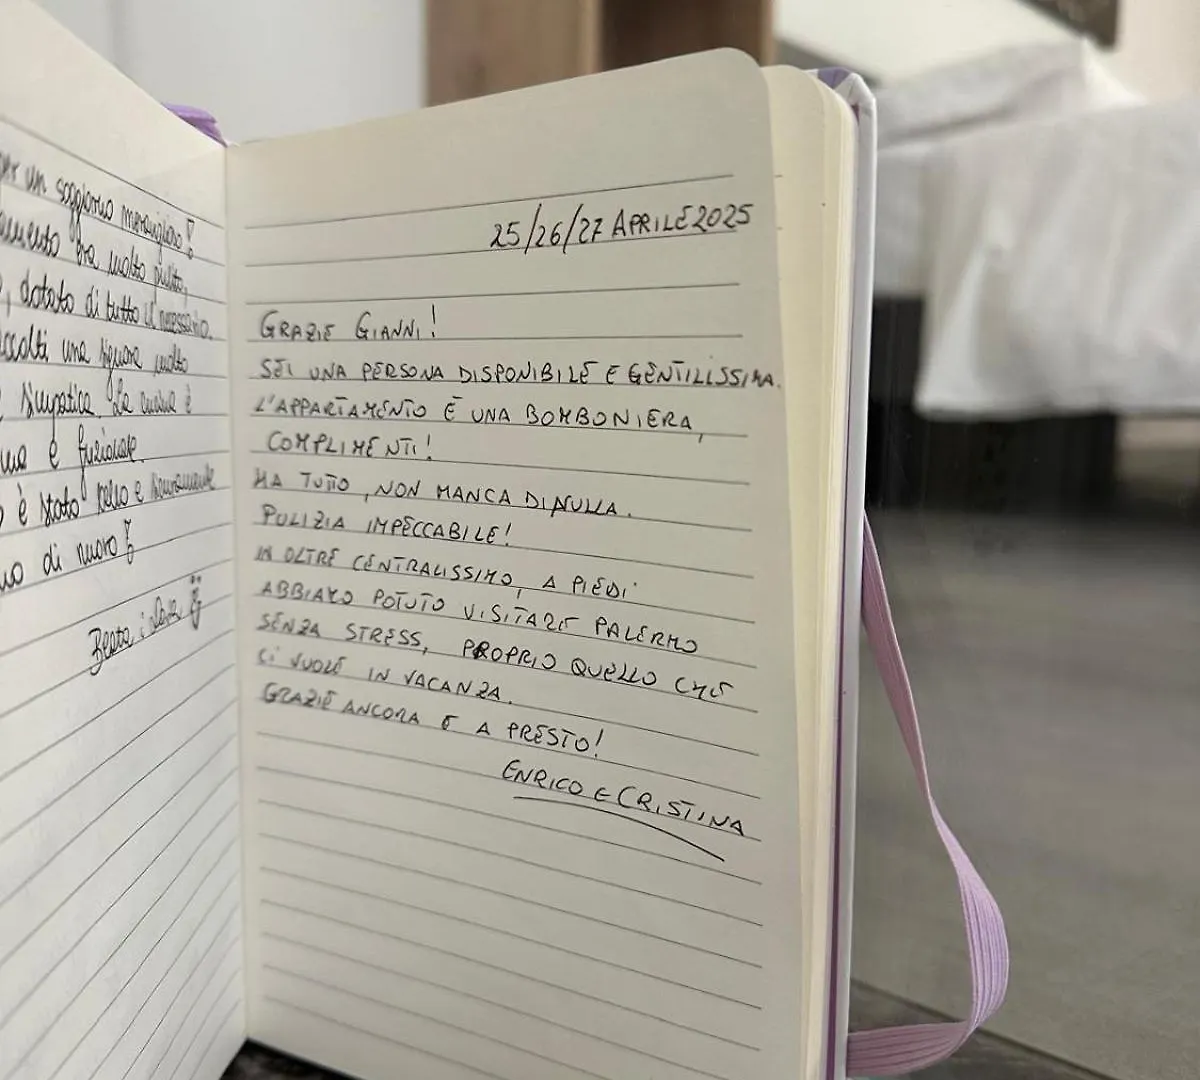 un soggiorno meraviglioso!
era molto pulito,
dotato di tutto il necessario.
una signora molto
simpatica. La cucina è
e funzionale.
è stato bello e sicuramente
di nuovo!
25/26/27 APRILE 2025
GRAZIE GIANNI!
SEI UNA PERSONA DISPONIBILE E GENTILISSIMA.
L'APPARTAMENTO È UNA BOMBONIERA,
COMPLIMENTI!
HA TUTTO, NON MANCA DI NULLA.
PULIZIA IMPECCABILE!
IN OLTRE CENTRALISSIMO, A PIEDI
ABBIAMO POTUTO VISITARE PALERMO
SENZA STRESS, PROPRIO QUELLO CHE
CI VUOLE IN VACANZA.
GRAZIE ANCORA E A PRESTO!
ENRICO E CRISTINA